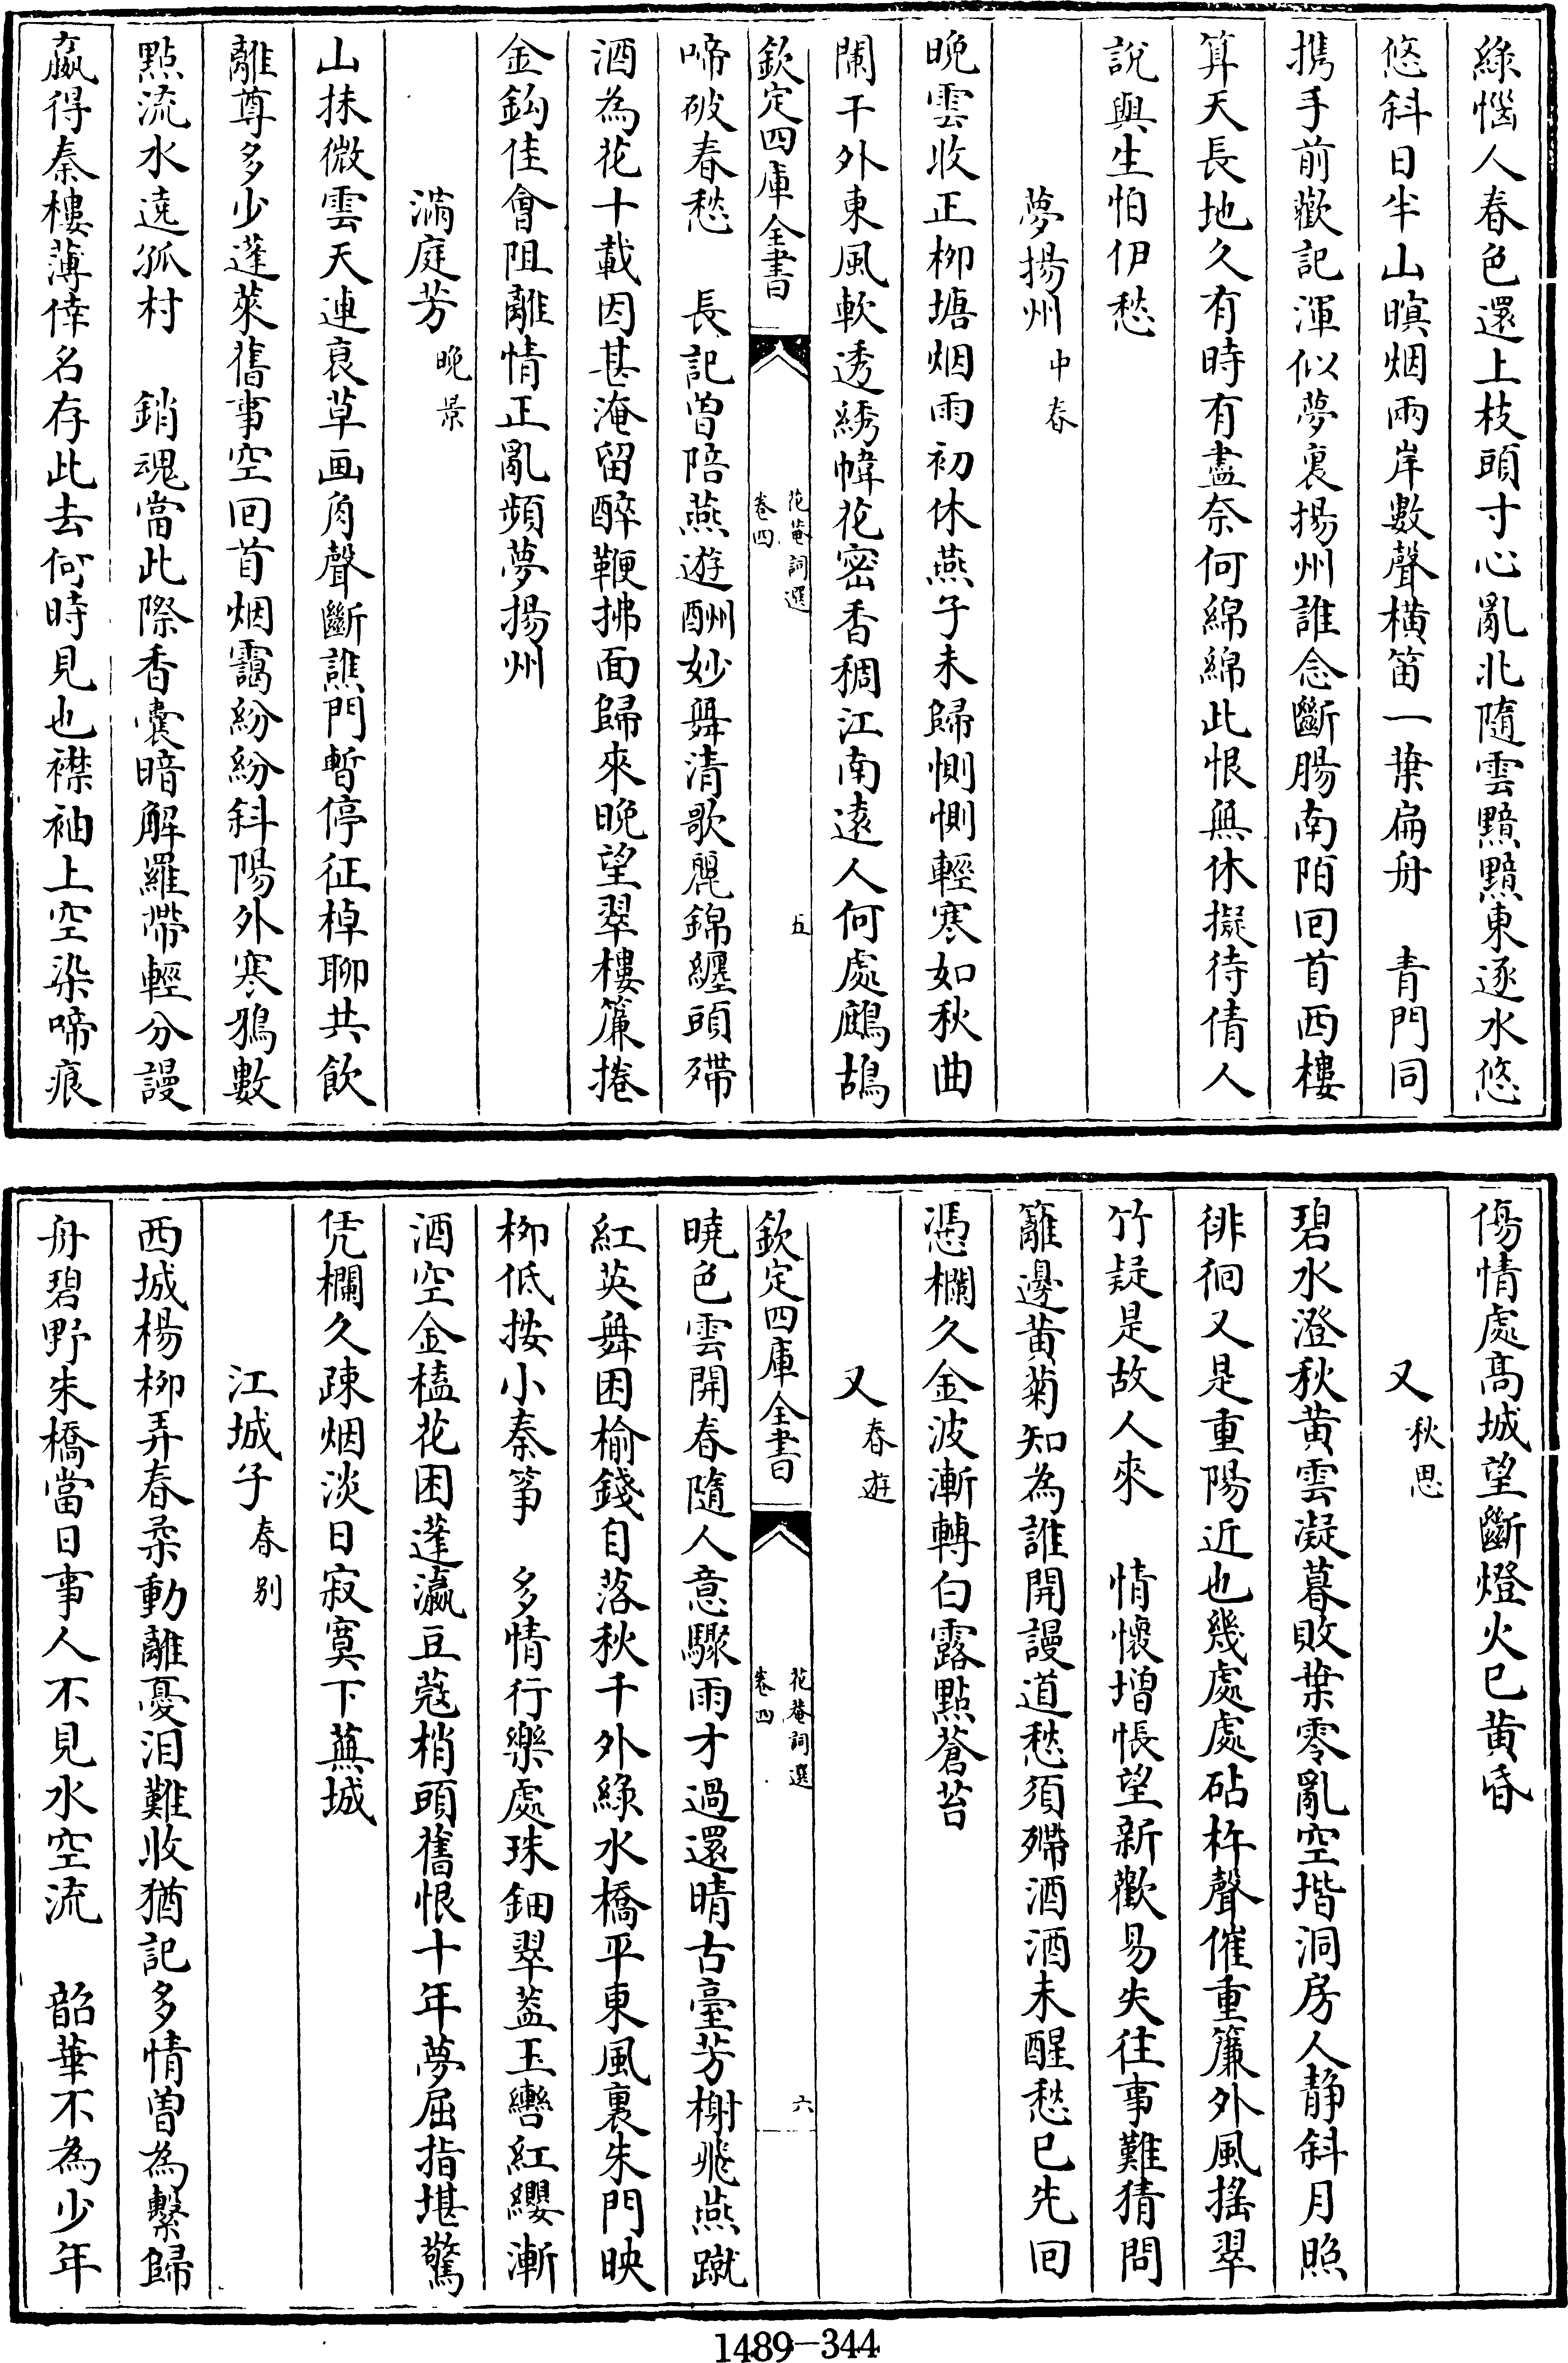 綠惱人春色還上枝頭寸心亂北隨雲黯黯東逐水悠
悠斜日半山暝烟兩岸數聲橫笛一葉扁舟　青門同
攜手前歡記渾似夢裏揚州誰念斷腸南陌回首西樓
算天長地久有時有盡奈何綿綿此恨無休擬待倩人
說與生怕伊愁
夢揚州 中春
晚雲收正栁塘烟雨初休燕子未歸惻惻輕寒如秋曲
闌干外東風軟透綉幃花密香稠江南遠人何處鷓鴣
欽定四庫全書 花菴詞選 卷四 五
啼破春愁　長記曾陪燕遊酬妙舞清歌麗錦纏頭殢
酒為花十載因甚淹留醉鞭拂面歸來晚望翠樓簾捲
金鈎佳會阻離情正亂頻夢揚州
滿庭芳 晚景
山抹微雲天連衰草画角聲斷譙門暫停征棹聊共飲
離尊多少蓬萊舊事空回首烟靄紛紛斜陽外寒鴉數
點流水遶孤村　銷魂當此際香囊暗解羅帶輕分謾
嬴得秦樓薄倖名存此去何時見也襟袖上空染啼痕
傷情處髙城望斷燈火已黄昏
又 秋思
碧水澄秋黄雲凝暮敗葉零亂空堦洞房人静斜月照
徘徊又是重陽近也幾處處砧杵聲催重簾外風搖翠
竹疑是故人來　情懷增悵望新歡易失往事難猜問
籬邊黄菊知為誰開謾道愁須殢酒酒未醒愁已先回
憑欄久金波漸轉白露點蒼苔
又 春遊
欽定四庫全書 花菴詞選 卷四 六
曉色雲開春隨人意驟雨才過還晴古臺芳榭飛燕蹴
紅英舞困榆錢自落秋千外綠水橋平東風裏朱門映
栁低按小秦筝　多情行樂處珠鈿翠葢玉轡紅纓漸
酒空金榼花困蓬瀛豆蔻梢頭舊恨十年夢屈指堪驚
凭欄久疎烟淡日寂寞下蕪城
江城子 春别
西城楊栁弄春柔動離憂泪難收猶記多情曾為繫歸
舟碧野朱橋當日事人不見水空流　韶華不為少年
1489-344